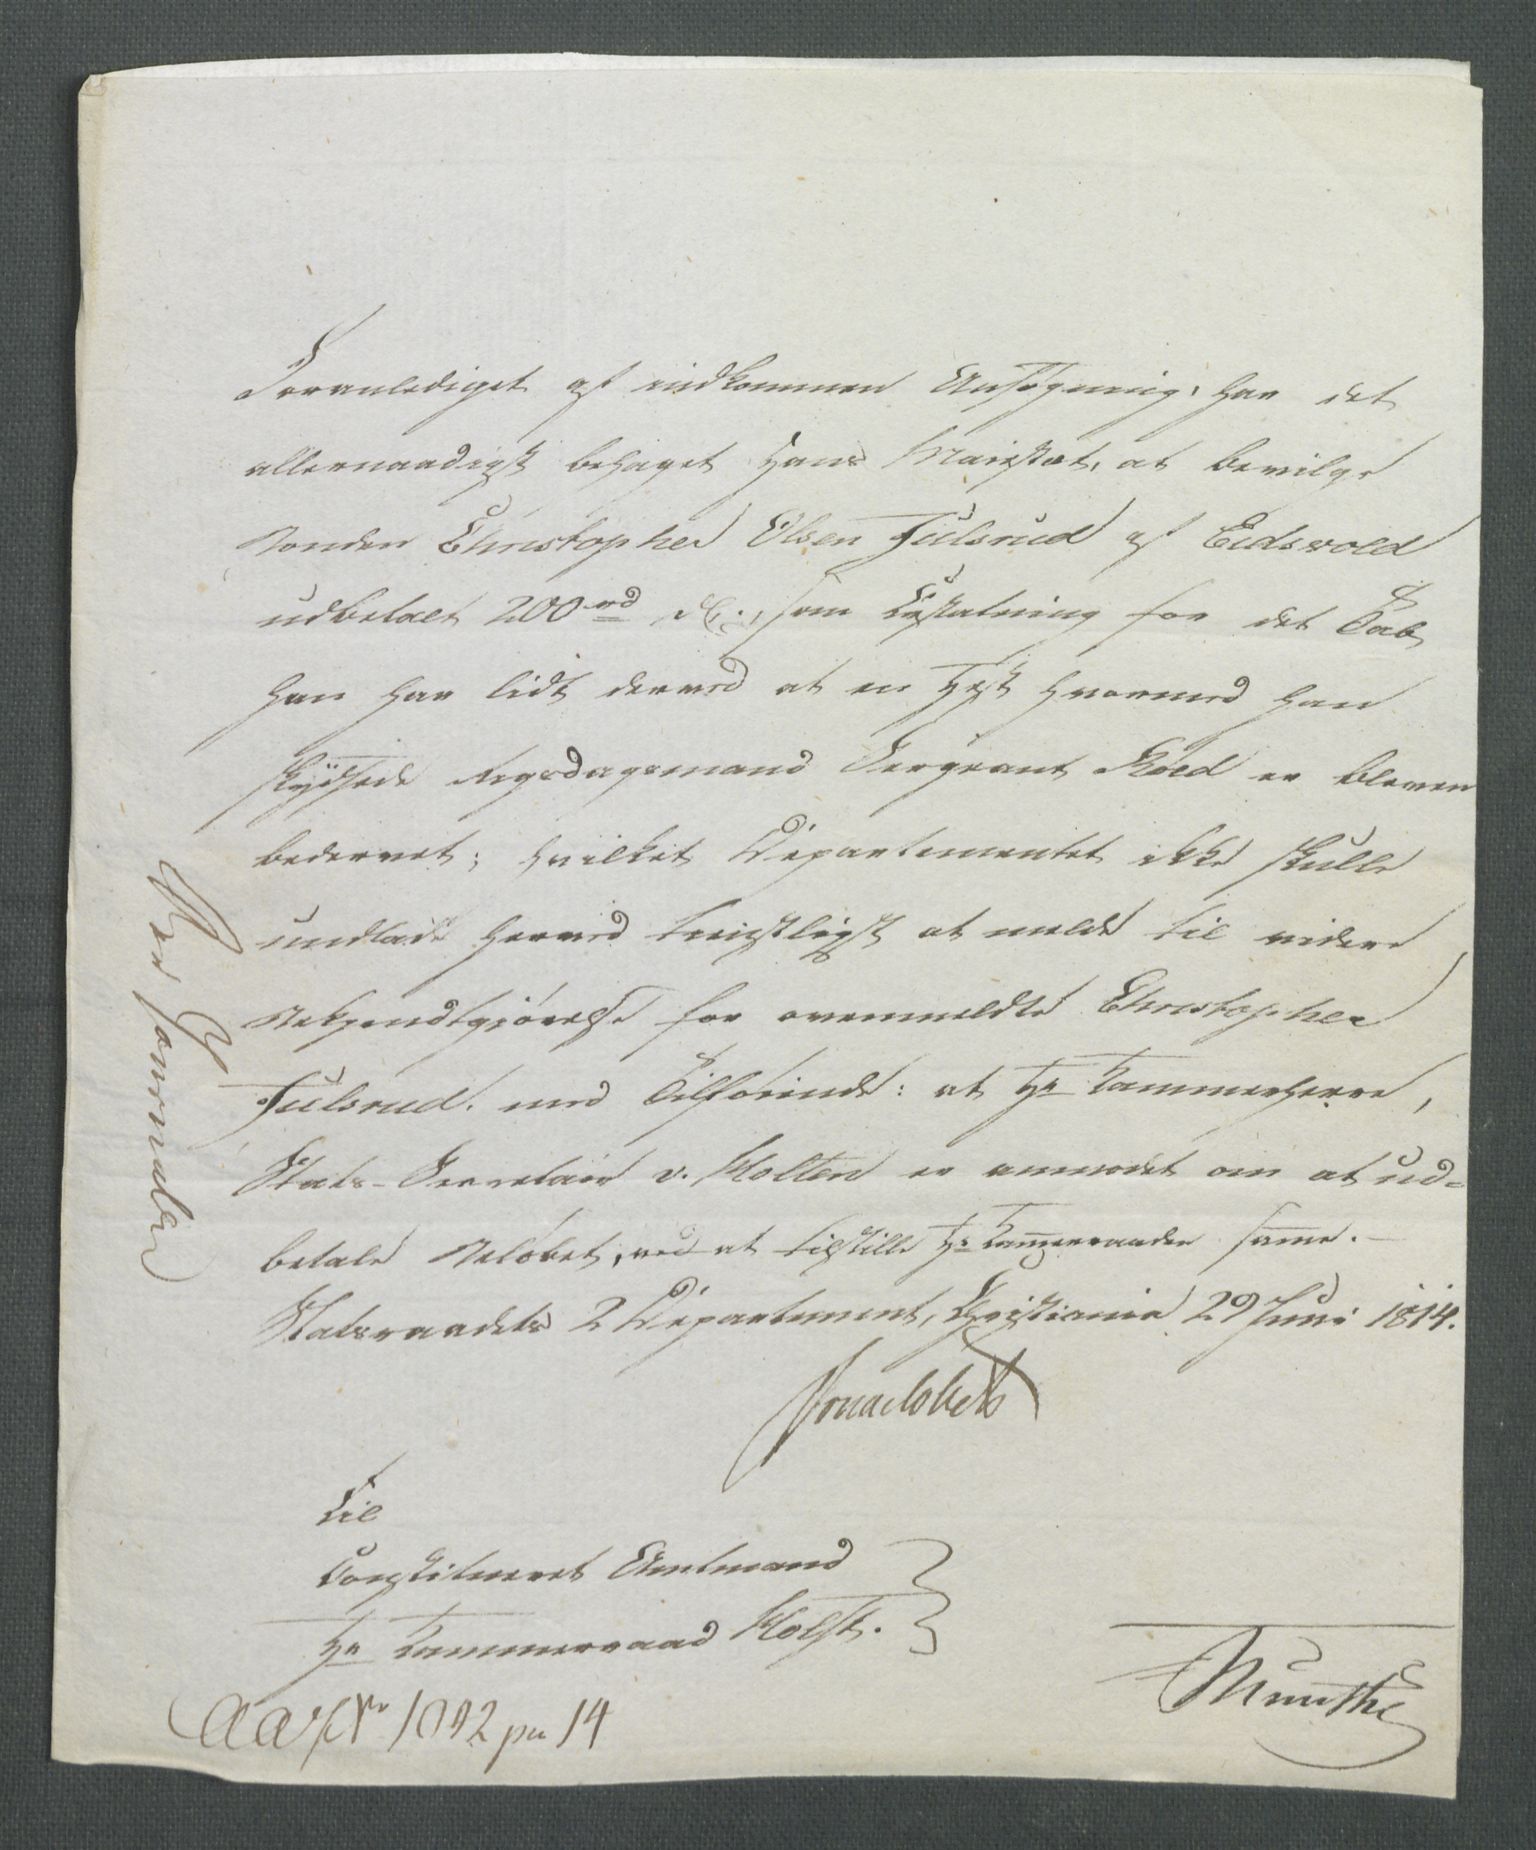 Foranlediget af indkommen Ansøgning, har det
allernaadigst behaget Hans Maiestæt, at bevilge
Bonden Christopher Olsen Julsrud af Eidsvold
udbetalt 200 rd som Erstatning for det Tab
han har lidt derved at en Hest hvormed han
skydsede Rigsdagsmand Sergeant Hoed er bleven
bedervet; hvilket Departementet ikke skulle
undlade herved tienstligst at melde til videre
Bekjendtgjörelse for ovenmeldte Christopher
Julsrud. med Tilföiende: at Hr Kammerherre,
Stats-Secretair v. Holten er anmodet om at ud-
betale Belöbet, ved at tilstille Hr Kammerraaden samme.
Statsraadets 2 Departement, Christiania 29 Juni 1814.
Til
Constitueret Amtmand
Hr Kammerraad Holst.
Munthe
No 1092 pro 14
Per Journalen